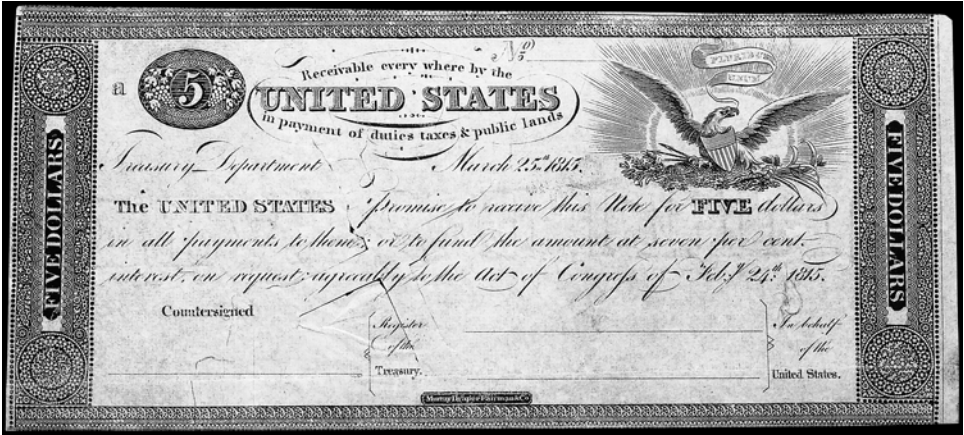 No)
5
Receivable every where by the
a
5
UNITED STATES
in payment of duties taxes & public lands
E PLURIBUS
UNUM
Treasury Department March 25th 1815.
The UNITED STATES Promise to receive this Note for FIVE dollars
in all payments to them; or to fund the amount at seven per cent.
interest, on request; agreeably to the Act of Congress of Feb.y 24th 1815.
Countersigned
Register
of the
Treasury.
In behalf
of the
United States.
FIVE DOLLARS
FIVE DOLLARS
Murray Draper Fairman & Co